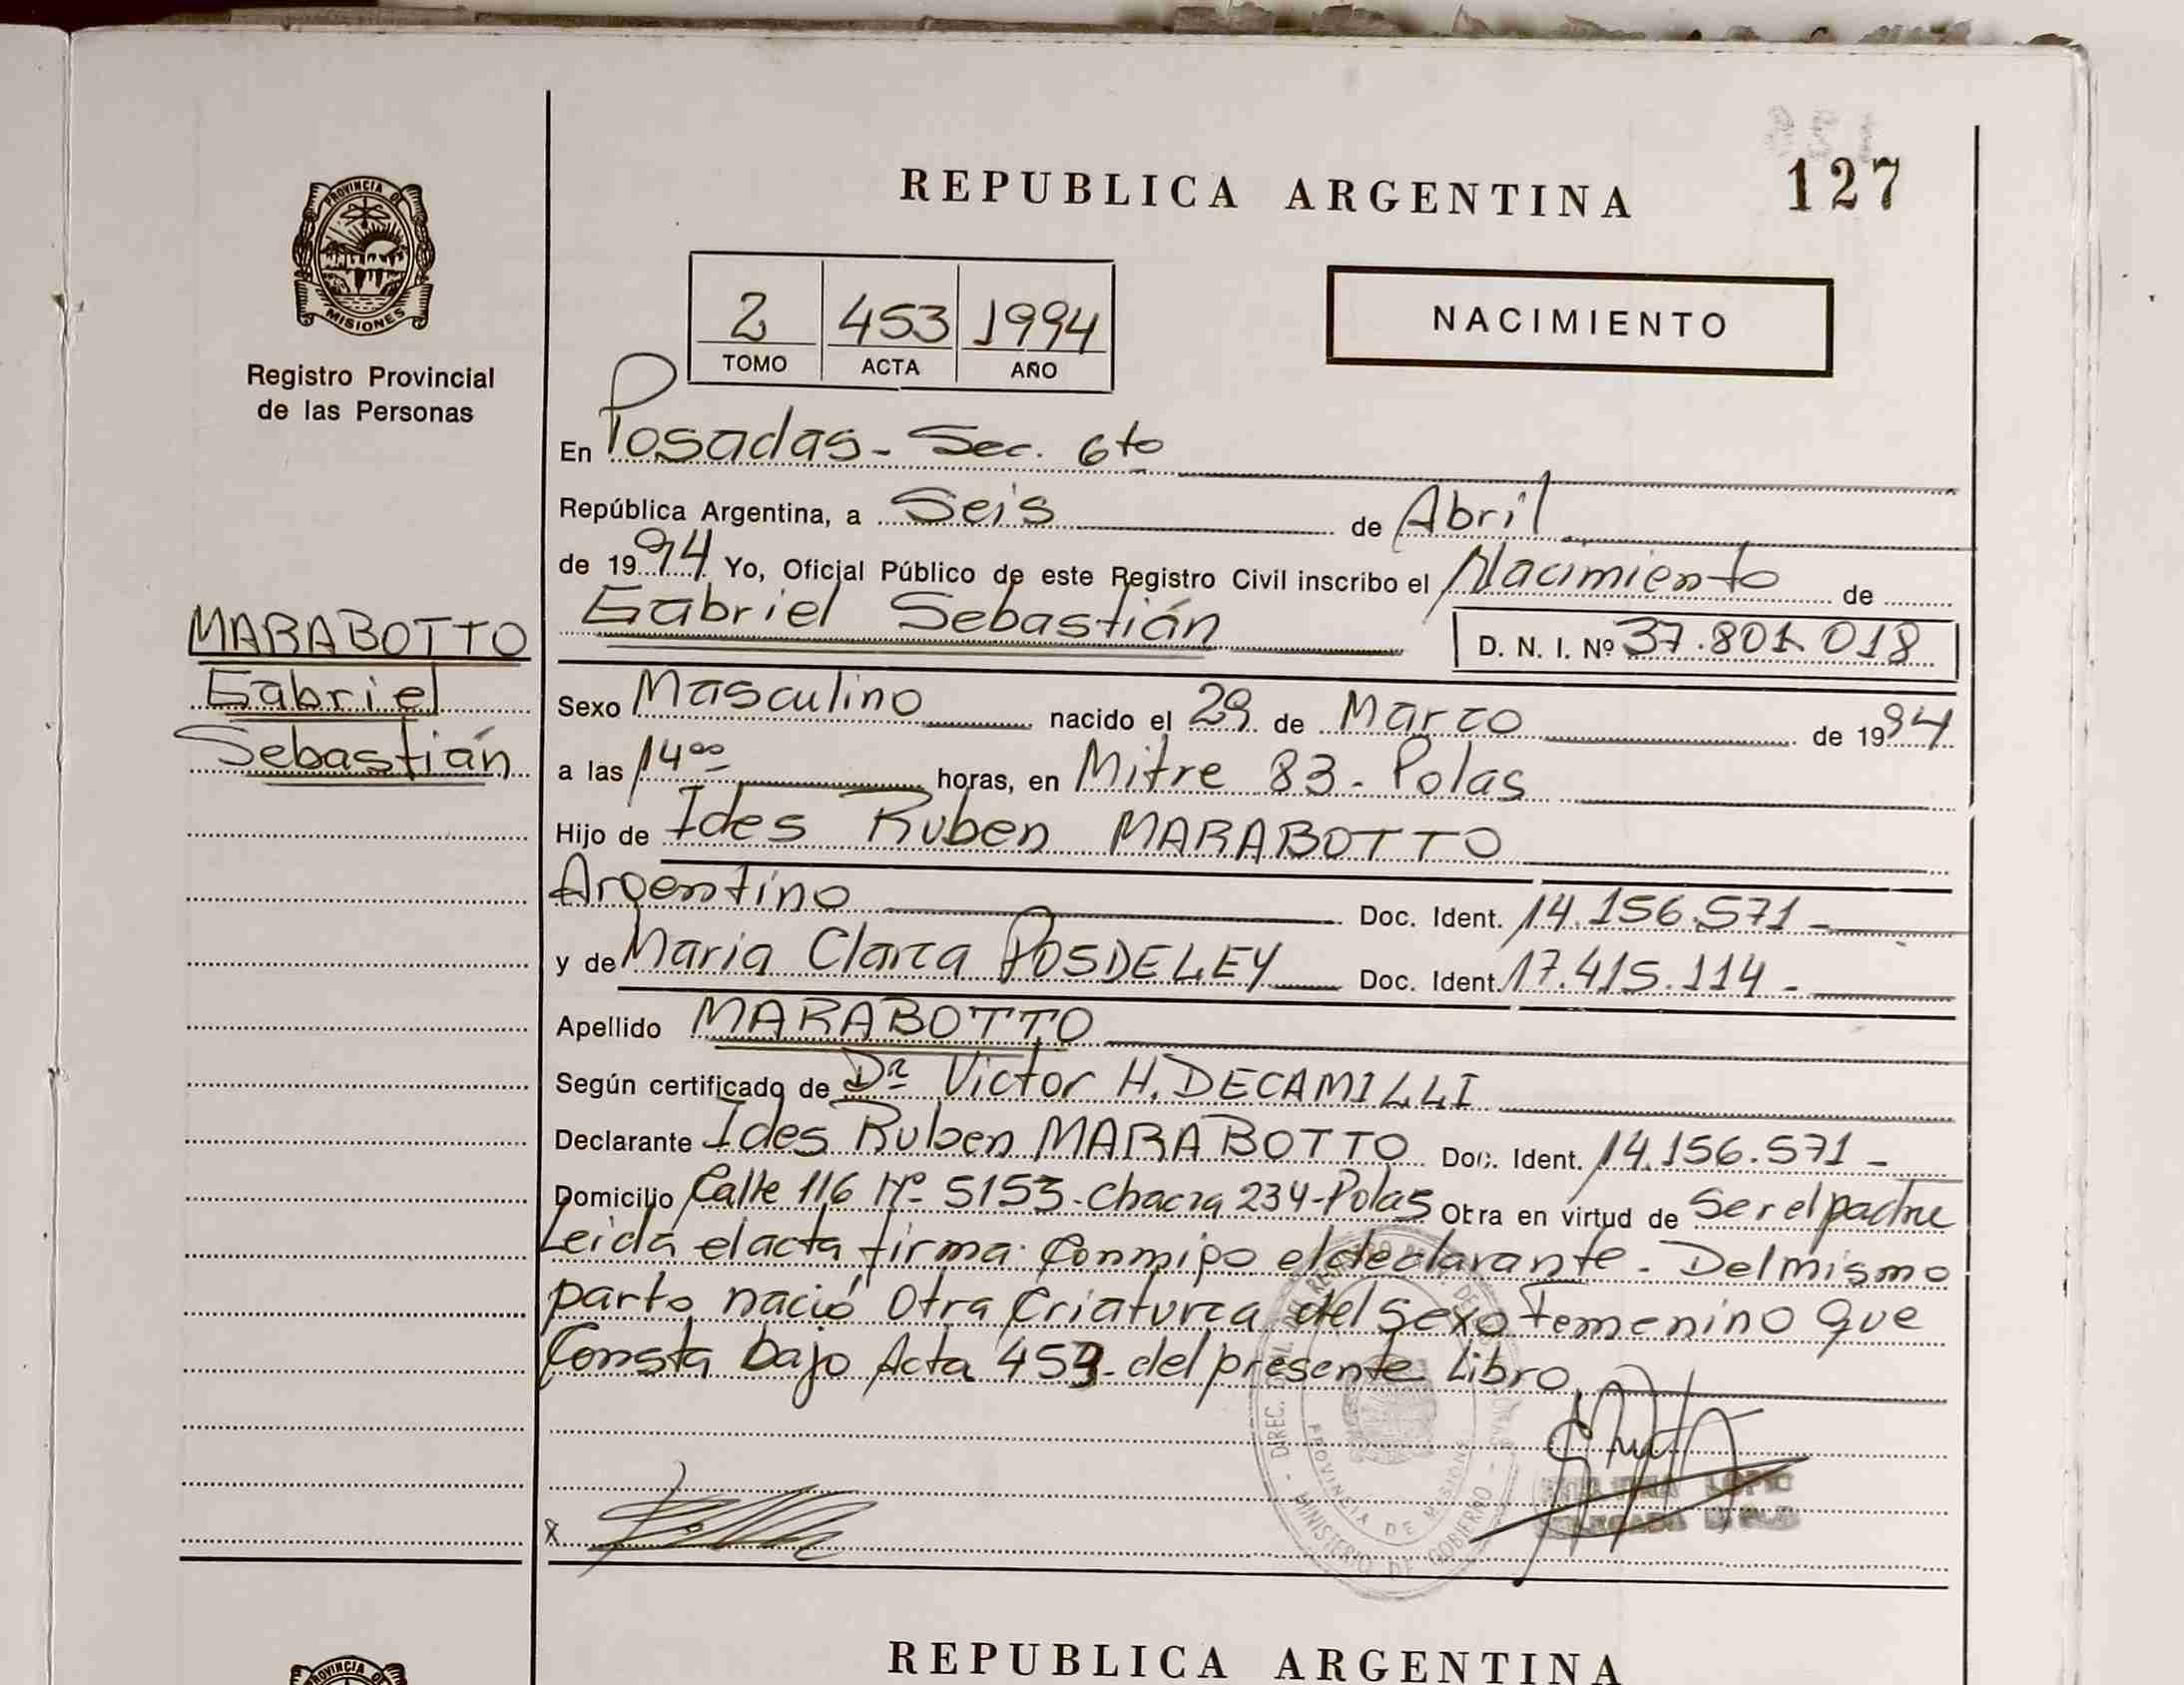 REPUBLICA ARGENTINA
127
PROVINCIA DE
MISIONES
Registro Provincial
de las Personas
2 453 1994
TOMO ACTA AÑO
NACIMIENTO
En Posadas - Sec. 6to
República Argentina, a Seis de Abril
de 1994 Yo, Oficial Público de este Registro Civil inscribo el Nacimiento de
Gabriel Sebastián D. N. I. Nº 37.801 018
MARABOTTO
Gabriel
Sebastián
Sexo Masculino nacido el 29 de Marzo de 1994
a las 14 00 horas, en Mitre 83 - Pdas
Hijo de Ides Ruben MARABOTTO
Argentino Doc. Ident. 14.156.571 -
y de Maria Clara POSDELEY Doc. Ident. 17.415.114 -
Apellido MARABOTTO
Según certificado de Dr Victor H. DECAMILLI
Declarante Ides Ruben MARABOTTO Doc. Ident. 14.156.571 -
Domicilio Calle 116 Nº 5153 - Chacra 234 - Pdas Otra en virtud de Ser el padre
Leida el acta firma Conmigo el declarante - Del mismo
parto nació Otra Criatura del Sexo Femenino Que
Consta bajo Acta del presente Libro
DIREC.
PROVINCIA DE MISIONES
MINISTERIO DE GOBIERNO
x
REPUBLICA ARGENTINA
PROVINCIA DE